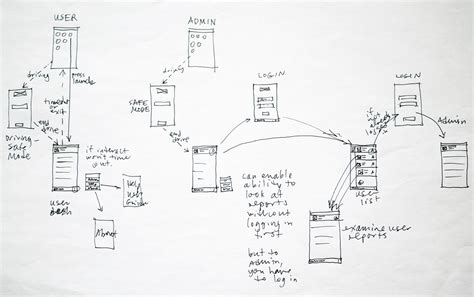 USER
ADMIN
driving
press
launch
driving
LOGIN
LOGIN
timeout
or
exit
SAFE
MODE
end
drive
end
drive
Driving-
safe
Mode
if
need
logged
Admin
if interact
won't time
out.
user
can enable
ability to
look at
reports
without
logging in
first
but to
Admin,
you have
to log in
user
list
Help
About
examine user
reports